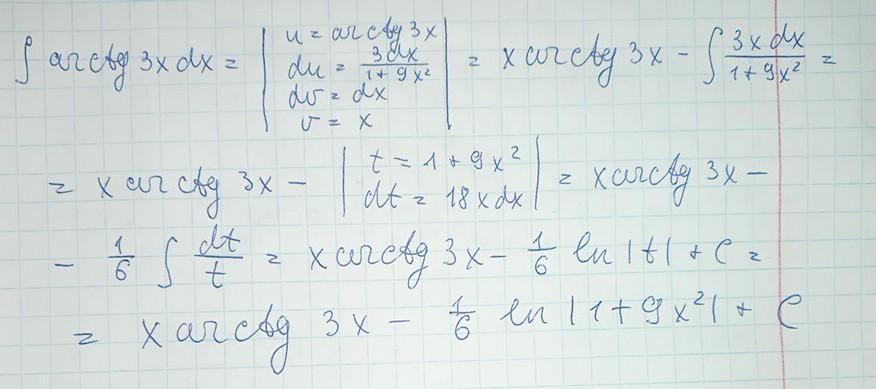 ∫ arctg 3x dx = | u = arctg 3x
du = 3dx/(1+9x²)
dv = dx
v = x | = x arctg 3x - ∫ 3x dx/(1+9x²) =
= x arctg 3x - | t = 1+9x²
dt = 18x dx | = x arctg 3x -
- 1/6 ∫ dt/t = x arctg 3x - 1/6 ln |t| + C =
= x arctg 3x - 1/6 ln |1+9x²| + C